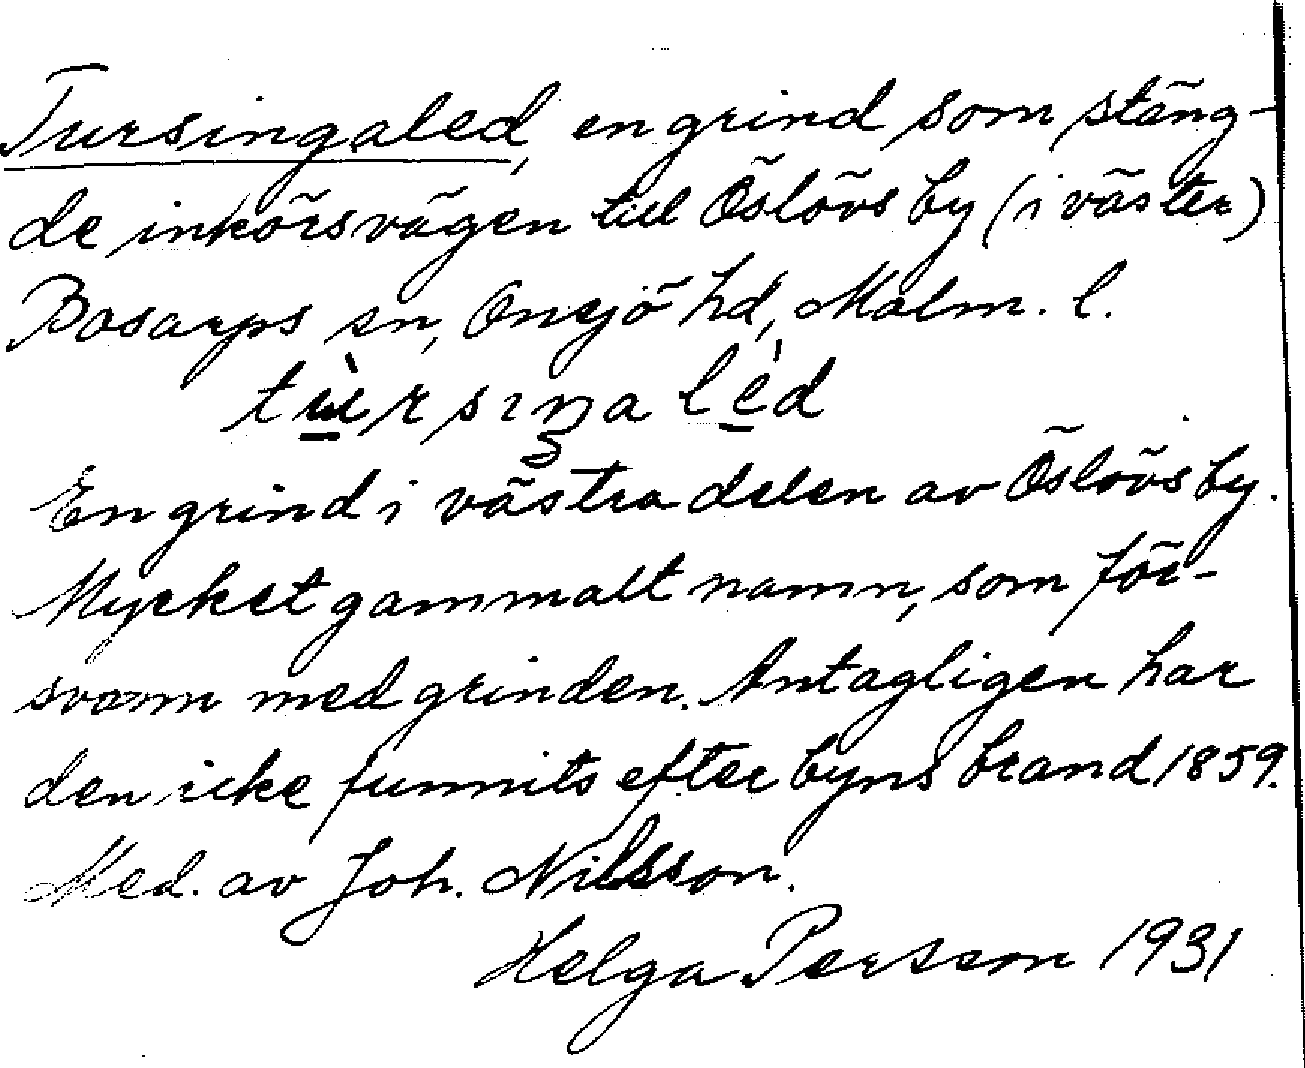 Tursingaled, en grind som stäng-
de inkörsvägen till Öslövs by (i väster)
Bosarps sn, Onsjö hd, Malm. l.
tùrsıŋa lèd
En grind i västra delen av Öslövs by.
Mycket gammalt namn, som för-
svann med grinden. Antagligen har
den icke funnits efter byns brand 1859.
Med. av Joh. Nilsson.
Helga Persson 1931